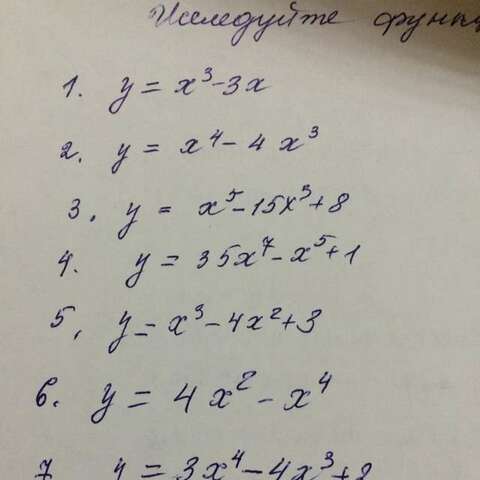 Исследуйте
1. y = x³-3x
2. y = x⁴-4x³
3. y = x⁵-15x³+8
4. y = 35x⁷-x⁵+1
5. y = x³-4x²+3
6. y = 4x²-x⁴
7 y = 3x⁴-4x³+